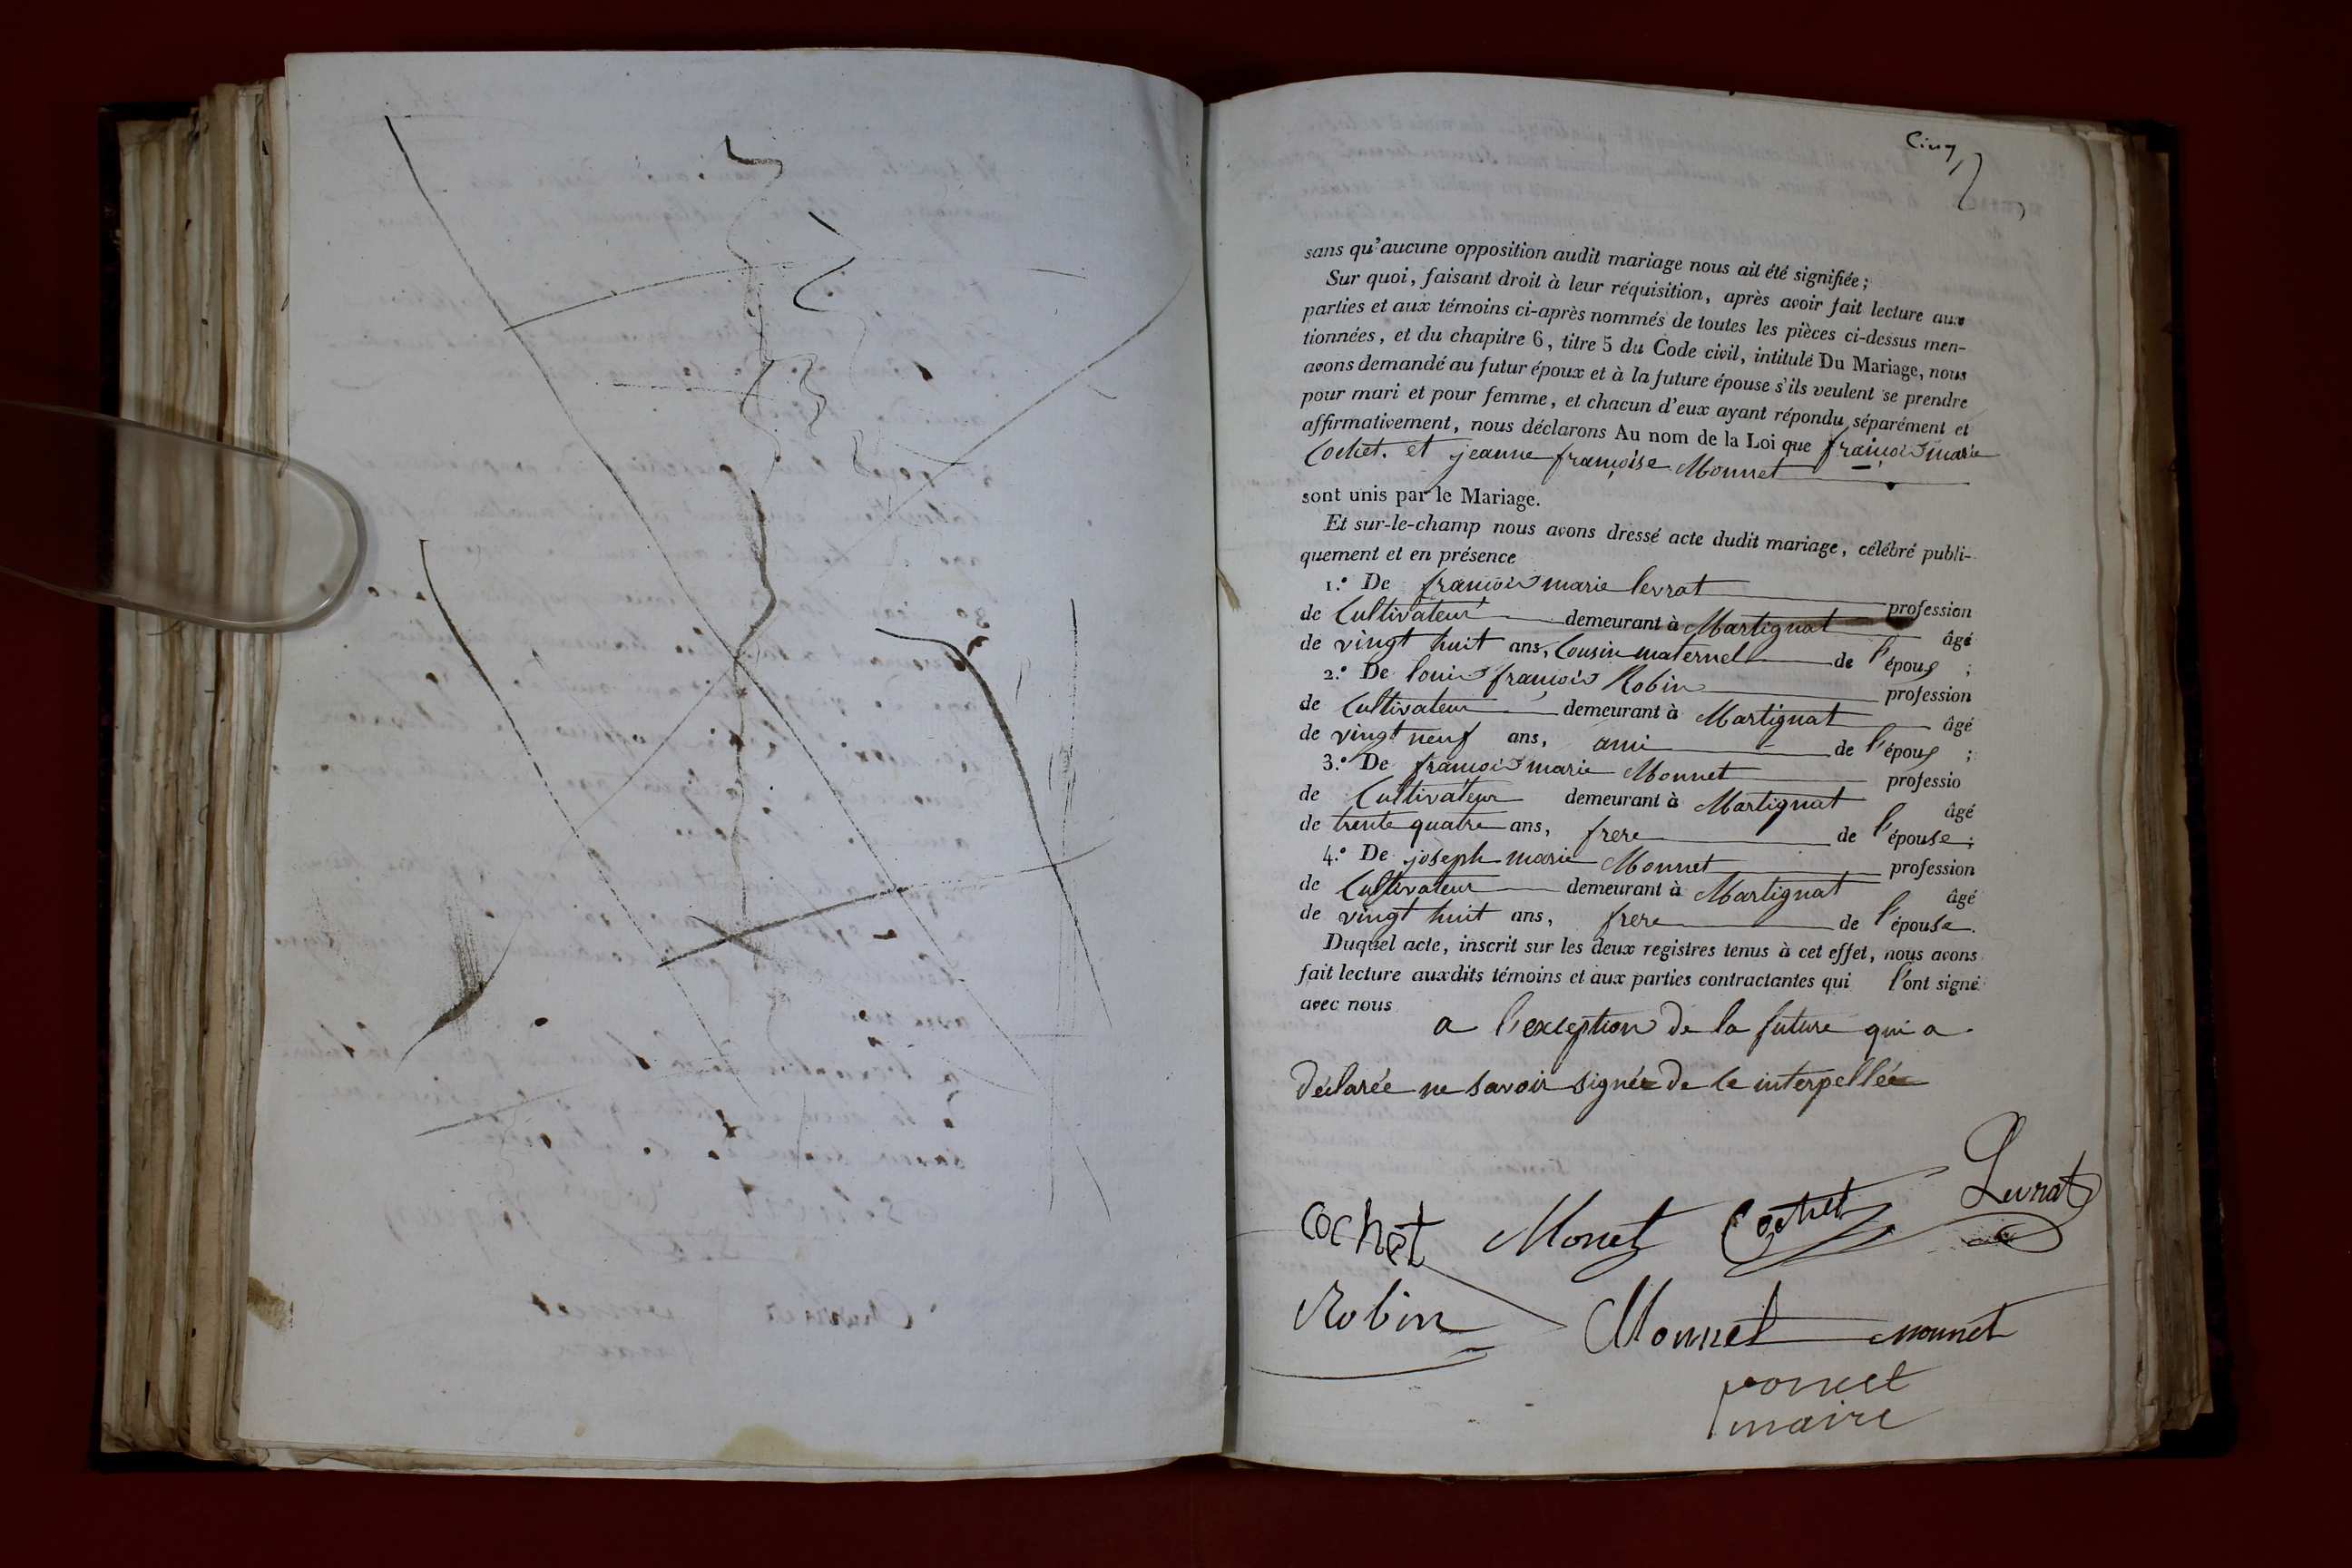 Cinq
sans qu'aucune opposition audit mariage nous ait été signifiée;
Sur quoi, faisant droit à leur réquisition, après avoir fait lecture aux
parties et aux témoins ci-après nommés de toutes les pièces ci-dessus men-
tionnées, et du chapitre 6, titre 5 du Code civil, intitulé Du Mariage, nous
avons demandé au futur époux et à la future épouse s'ils veulent se prendre
pour mari et pour femme, et chacun d'eux ayant répondu séparément et
affirmativement, nous déclarons Au nom de la Loi que françois marie
Cochet. et jeanne françoise Monnet
sont unis par le Mariage.
Et sur-le-champ nous avons dressé acte dudit mariage, célébré publi-
quement et en présence
1.° De françois marie levrat profession
de Cultivateur demeurant à Martignat âgé
de vingt huit ans, Cousin maternel de l'époux ;
2.° De louis françois Robin profession
de Cultivateur demeurant à Martignat âgé
de vingt neuf ans, ami de l'époux ;
3.° De françois marie Monnet professio
de Cultivateur demeurant à Martignat âgé
de trente quatre ans, frere de l'épouse ;
4.° De joseph marie Monnet profession
de Cultivateur demeurant à Martignat âgé
de vingt huit ans, frere de l'épouse.
Duquel acte, inscrit sur les deux registres tenus à cet effet, nous avons
fait lecture auxdits témoins et aux parties contractantes qui l'ont signé
avec nous
a l'exception de la future qui a
déclarée ne savoir signée de ce interpellée
cochet Monet Cochet Levrat
Robin Monnet monnet
poncet
maire